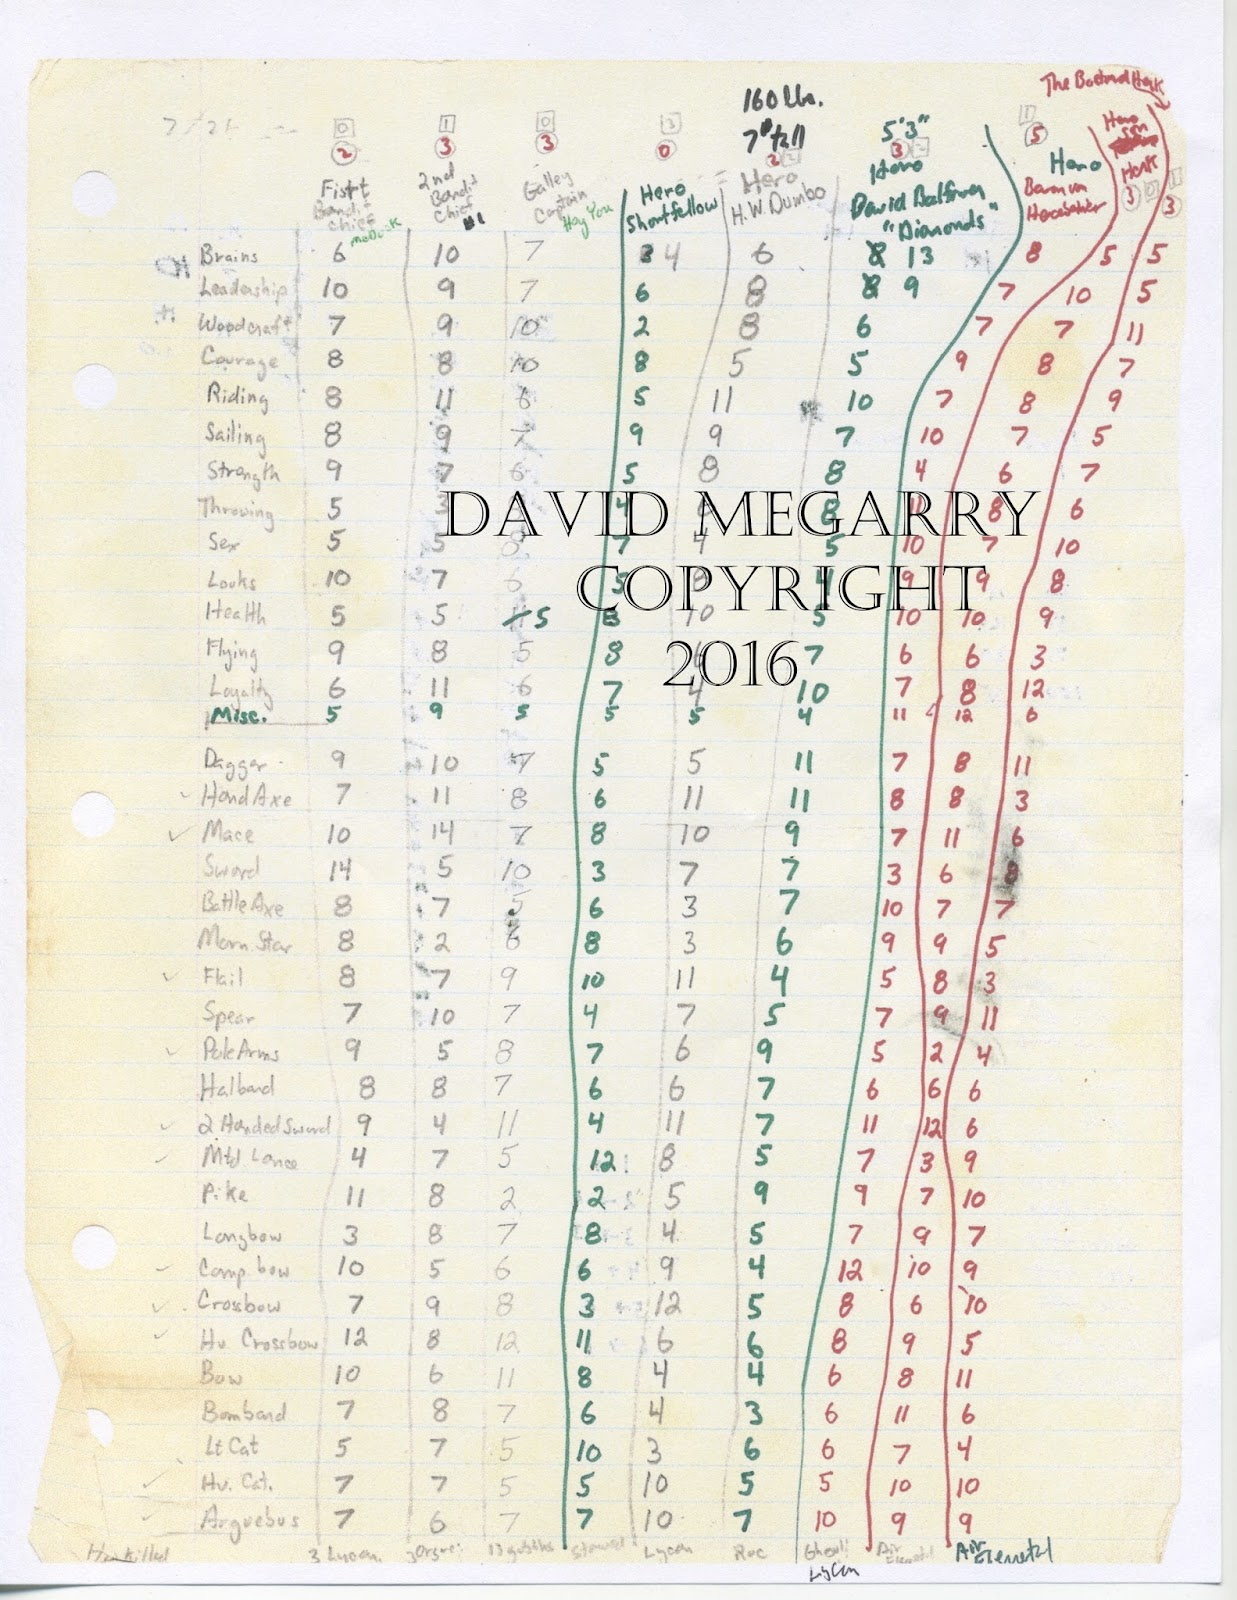 The Bastard Henk
160 lbs.
7' tall
5'3"
0 1 0 3 2 3 2 1
2 3 3 0 2 3 5 3 0 3
First Bandit Chief
2nd Bandit Chief #1
Galley Captain Hey You
Hero Shortfellow
Hero H.W. Dumbo
Hero David Balfour "Diamonds"
Hero Baron von
Hero Henk
Brains 6 10 7 4 6 13 8 5 5
Leadership 10 9 7 6 8 9 7 10 5
Woodcraft 7 9 10 2 8 6 7 7 11
Courage 8 8 10 8 5 5 9 8 7
Riding 8 11 6 5 11 10 7 8 9
Sailing 8 9 7 9 9 7 10 7 5
Strength 9 7 6 5 8 8 4 6 7
Throwing 5 3 4 8 11 8 6
DAVID MEGARRY
Sex 5 5 7 4 5 10 7 10
Looks 10 7 6 5 8 4 9 9 8
COPYRIGHT
Health 5 5 5 8 10 5 10 10 9
Flying 9 8 5 8 7 6 6 3
2016
Loyalty 6 11 6 7 4 10 7 8 12
Misc. 5 9 5 5 5 4 11 12 6
Dagger 9 10 7 5 5 11 7 8 11
Hand Axe 7 11 8 6 11 11 8 8 3
Mace 10 14 7 8 10 9 7 11 6
Sword 14 5 10 3 7 7 3 6 8
Battle Axe 8 7 5 6 3 7 10 7 7
Morn. Star 8 2 6 8 3 6 9 9 5
Flail 8 7 9 10 11 4 5 8 3
Spear 7 10 7 4 7 5 7 9 11
Pole Arms 9 5 8 7 6 9 5 2 4
Halbard 8 8 7 6 6 7 6 6 6
2 Handed Sword 9 4 11 4 11 7 11 12 6
Mtd Lance 4 7 5 12 8 5 7 3 9
Pike 11 8 2 2 5 9 9 7 10
Longbow 3 8 7 8 4 5 7 9 7
Comp. bow 10 5 6 6 9 4 12 10 9
Crossbow 7 9 8 3 12 5 8 6 10
Hv Crossbow 12 8 12 11 6 6 8 9 5
Bow 10 6 11 8 4 4 6 8 11
Bombard 7 8 7 6 4 3 6 11 6
Lt Cat 5 7 5 10 3 6 6 7 4
Hv. Cat. 7 7 5 5 10 5 5 10 10
Arguebus 7 6 7 7 10 7 10 9 9
3 Lycan. Lycan Roc Ghoul Air Elemetal Air Elemetal
Lycan